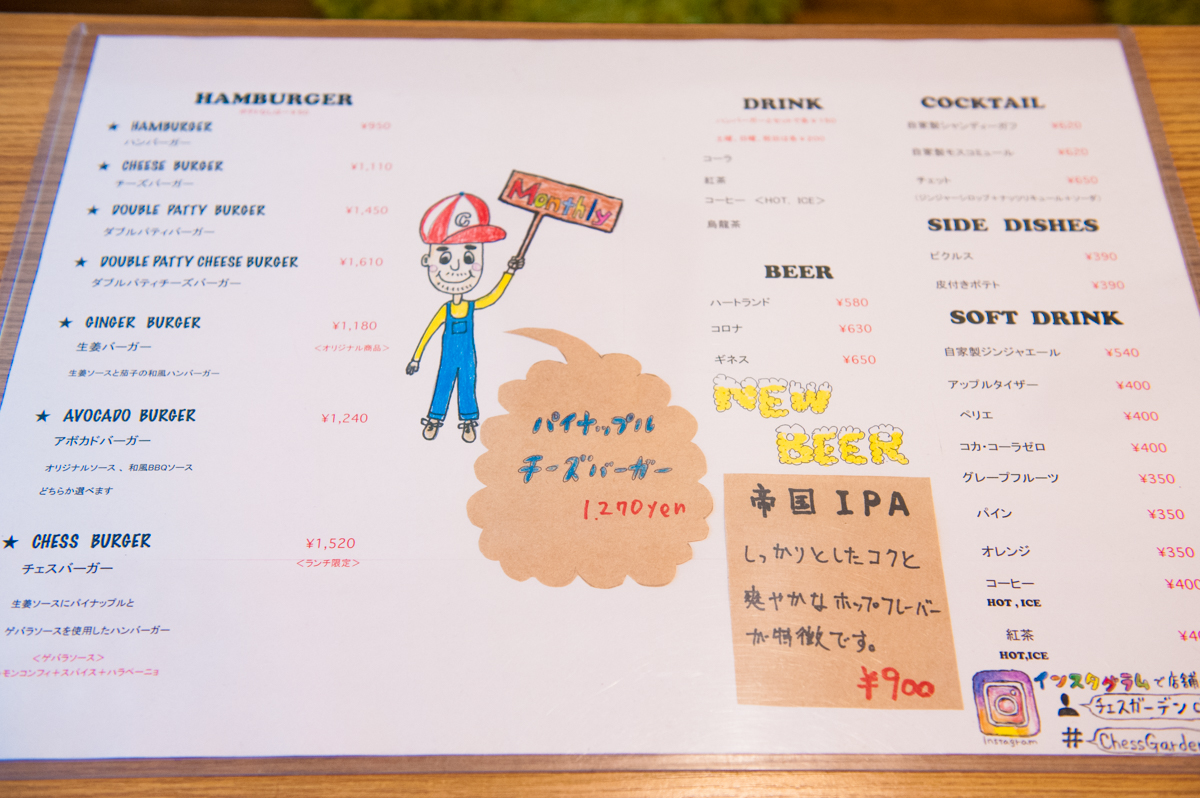 HAMBURGER
★ HAMBURGER ¥950
ハンバーガー
★ CHEESE BURGER ¥1,110
チーズバーガー
★ DOUBLE PATTY BURGER ¥1,450
ダブルパティバーガー
★ DOUBLE PATTY CHEESE BURGER ¥1,610
ダブルパティチーズバーガー
★ GINGER BURGER ¥1,180
生姜バーガー <オリジナル商品>
生姜ソースと茄子の和風ハンバーガー
★ AVOCADO BURGER ¥1,240
アボカドバーガー
オリジナルソース 、和風BBQソース
どちらか選べます
★ CHESS BURGER ¥1,520
チェスバーガー <ランチ限定>
生姜ソースにパイナップルと
ゲバラソースを使用したハンバーガー
<ゲバラソース>
モンコンフィ+スパイス+ハラペーニョ
C
Monthly
パイナップル
チーズバーガー
1.270yen
DRINK
コーラ
紅茶
コーヒー <HOT, ICE>
烏龍茶
BEER
ハートランド ¥580
コロナ ¥630
ギネス ¥650
NEW
BEER
帝国 IPA
しっかりとしたコクと
爽やかなホップフレーバー
が特徴です。
¥900
COCKTAIL
自家製シャンディーガフ ¥620
自家製モスコミュール ¥620
チェット ¥650
(ジンジャーシロップ+ナッツリキュール+ソーダ)
SIDE DISHES
ピクルス ¥390
皮付きポテト ¥390
SOFT DRINK
自家製ジンジャエール ¥540
アップルタイザー ¥400
ペリエ ¥400
コカ・コーラゼロ ¥400
グレープフルーツ ¥350
パイン ¥350
オレンジ ¥350
コーヒー ¥400
HOT , ICE
紅茶
HOT,ICE
インスタグラムで店舗
チェスガーデン
Instagram
# ChessGarden